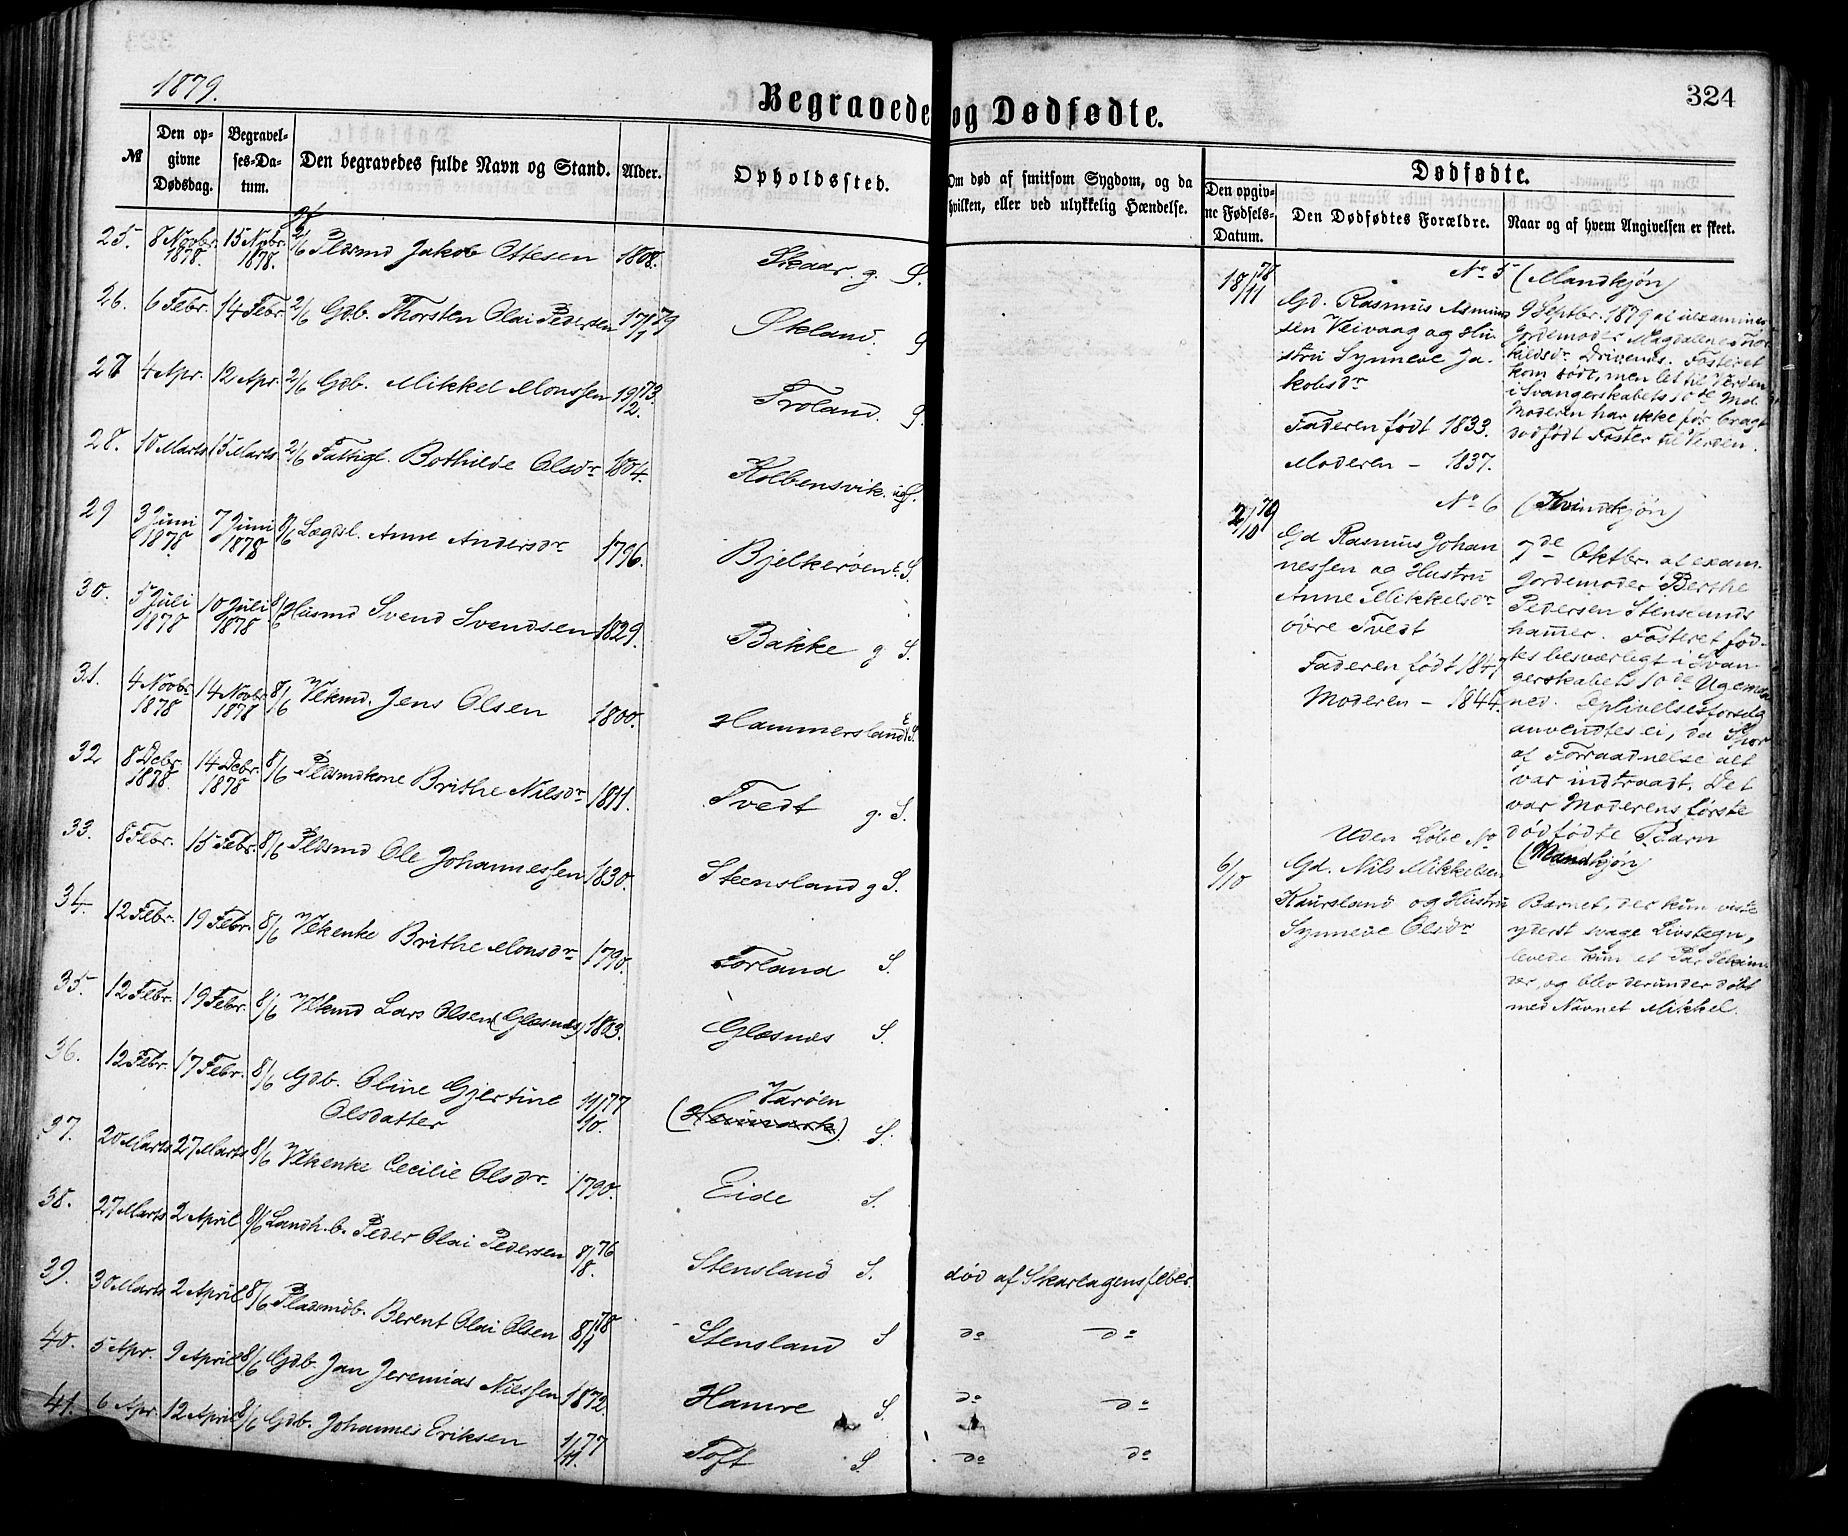 1879.
Begravede og Dødfødte.
324
№
Den opgivne Dødsdag.
Begravelses-Datum.
Den begravedes fulde Navn og Stand.
Alder.
Opholdssted.
Om død af smitsom Sygdom, og da hvilken, eller ved ulykkelig Hændelse.
Dødfødte.
Den opgivne Fødsels-Datum.
Den Dødfødtes Forældre.
Naar og af hvem Angivelsen er skeet.
25. 8 Novbr. 1878. 15 Novbr. 1878. 2/6 Pldsmd Jakob Ottesen 1808. Skaar g. S.
26. 6 Febr. 14 Febr. 2/6 Gdb. Thorsten Olai Pedersen 17/1 79 Økland. g
27 4 Apr. 12 Apr. 2/6 Gdb. Mikkel Monssen 19/12 73. Troland. g.
28. 10 Marts 15 Marts 2/6 Fattigl. Bothilde Olsdr 1804. Kolbensvik. S.
29 3 Juni 1878 7 Juni 1878 8/6 Lægdsl. Anne Andersdr 1796. Bjelkerøen S.
30. 5 Juli 1878 10 Juli 1878 8/6 Husmd Svend Svendsen 1829. Bakke g S.
31. 4 Novbr 1878 14 Novbr. 1878 8/6 Vlkmd. Jens Olsen 1800. Hammersland S.
32 8 Debr. 1878. 14 Debr. 1878 8/6 Pldsmdkone Brithe Nilsdr 1811. Tvedt g. S.
33. 8 Febr. 15 Febr. 8/6 Pldsmd Ole Johannessen 1830. Steensland g S.
34. 12 Febr. 19 Febr. 8/6 Vlkenke Brithe Monsdr 1790. Forland S.
35. 12 Febr. 19 Febr. 8/6 Vlkmd Lars Olsen (Glæsnæs) 1803. Glæsnæs S.
36. 12 Febr. 17 Febr. 8/6 Gdb. Oline Gjertine 11/10 77 Varøen
Olsdatter (Heimark) S.
37. 20 Marts 27 Marts 8/6 Vlkenke Cecilie Olsdr. 1790. Eide S.
38. 27 Marts 2 April 8/6 Landh.b. Peder Olai Pedersen 8/8 76. Stensland S. død af Skarlagensfeber.
39. 30 Marts 2 April 8/6 Pladsmdb. Berent Olai Olsen 8/1 78 Stensland S do do
40. 5 Apr. 9 April 8/6 Gdb. Jan Jeremias Nilssen 1872 Hamre S. do do
41. 6 Apr. 12 April 8/6 Gdb. Johannes Eriksen 1/11 77 Toft S. do do
18/11 78
No 5 (Mandkjøn)
Gd. Rasmus Asmundsen
Veivaag og Hustru
Synneve Jakobsdr
Faderen født 1833.
Moderen – 1837.
9 Septbr. 1879 af uexamineret
Jordemoder Magdalene Thorkildsdr
Drivenes. Fosteret
kom dødt, men let til Verden
i Svangerskabets 10de Md.
Moderen har ikke før bragt
dødfødt Foster til Verden.
2/10 79
No 6 (Kvindkjøn)
Gd Rasmus Johannessen
og Hustru
Anne Mikkelsdr
øvre Tvedt
Faderen født 1847
Moderen – 1844.
7de Oktbr. af exam.
Jordemoder Berthe
Pedersen Stenslands
hamer. Fosteret fødtes
besværligt i Svangerskabets
10de
Oplivelsesforsøg
anvendtes ei, da Spor
af Forraadnelse alt
var indtraadt. Det
var Moderens første
dødfødte Barn
6/10
Uden Løbe No (Mandkjøn)
Gd. Nils Mikkelsen
Kaursland og Hustru
Synneve Olsdr
Barnet, der kun viste
yderst svage Livstegn,
levede kun et Par
og blev derunder døbt
med Navnet Mikkel.